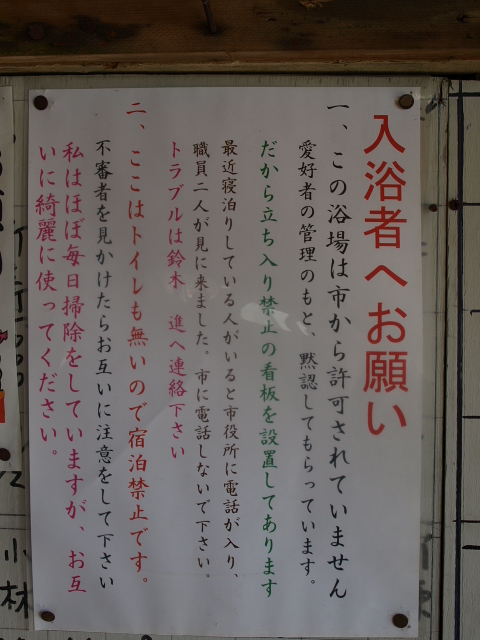 入浴者へお願い
一、この浴場は市から許可されていません
愛好者の管理のもと、黙認してもらっています。
だから立ち入り禁止の看板を設置してあります
最近寝泊りしている人がいると市役所に電話が入り、
職員二人が見に来ました。市に電話しないで下さい。
トラブルは鈴木 進へ連絡下さい
二、ここはトイレも無いので宿泊禁止です。
不審者を見かけたらお互いに注意をして下さい
私はほぼ毎日掃除をしていますが、お互
いに綺麗に使ってください。
小林